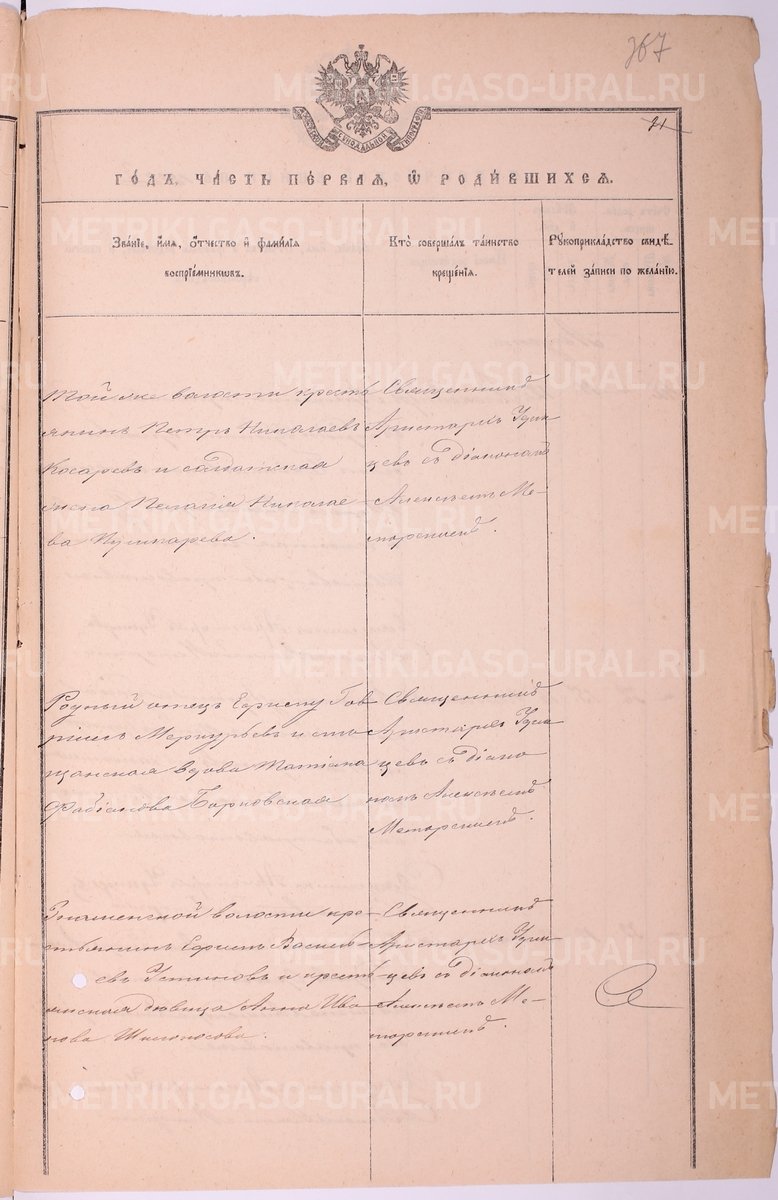 367
21
ГОДЪ, ЧАСТЬ ПЕРВАЯ, Ѡ РОДИВШИХСЯ.
Званіе, имя, отчество и фамилія
воспріемниковъ.
Кто совершалъ таинство
крещенія.
Рукоприкладство свидѣ-
телей записи по желанію.
Той же волости кресть
янинъ Петръ Николаевъ
Косаревъ и солдатская
жена Пелагія Николае-
ва Пушкарева.
Священникъ
Аристархъ
цевъ съ діакономъ
Алексѣемъ Ме-
морскимъ.
Родный отецъ Гав
ріилъ Меркурьевъ и
вдова Татіана
Фабіанова
Священникъ
Аристархъ
цевъ съ діако
номъ Алексѣемъ
Меморскимъ.
Знаменской волости кре-
стьянинъ Василь-
евъ Устиновъ и кресть
янская дѣвица Анна Ива
нова Шилоносова.
Священникъ
Аристархъ
цевъ съ діакономъ
Алексѣемъ Ме-
морскимъ.
METRIKI.GASO-URAL.RU